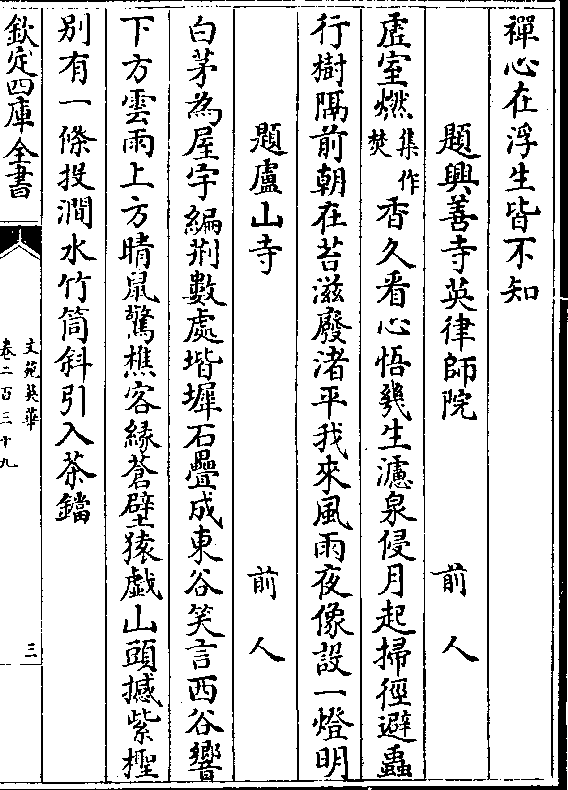 禪心在浮生皆不知
題興善寺英律師院 前人
虛室燃集作焚香久看心悟幾生濾泉侵月起掃徑避蟲
行樹隔前朝在苔滋廢渚平我來風雨夜像設一燈明
題盧山寺 前人
白茅為屋宇編荆數處堦墀石疊成東谷笑言西谷響
下方雲雨上方晴鼠驚樵客緣蒼壁猿戯山頭撼紫檉
別有一條投澗水竹筒斜引入茶鐺
欽定四庫全書
文苑英華
卷二百三十九
三